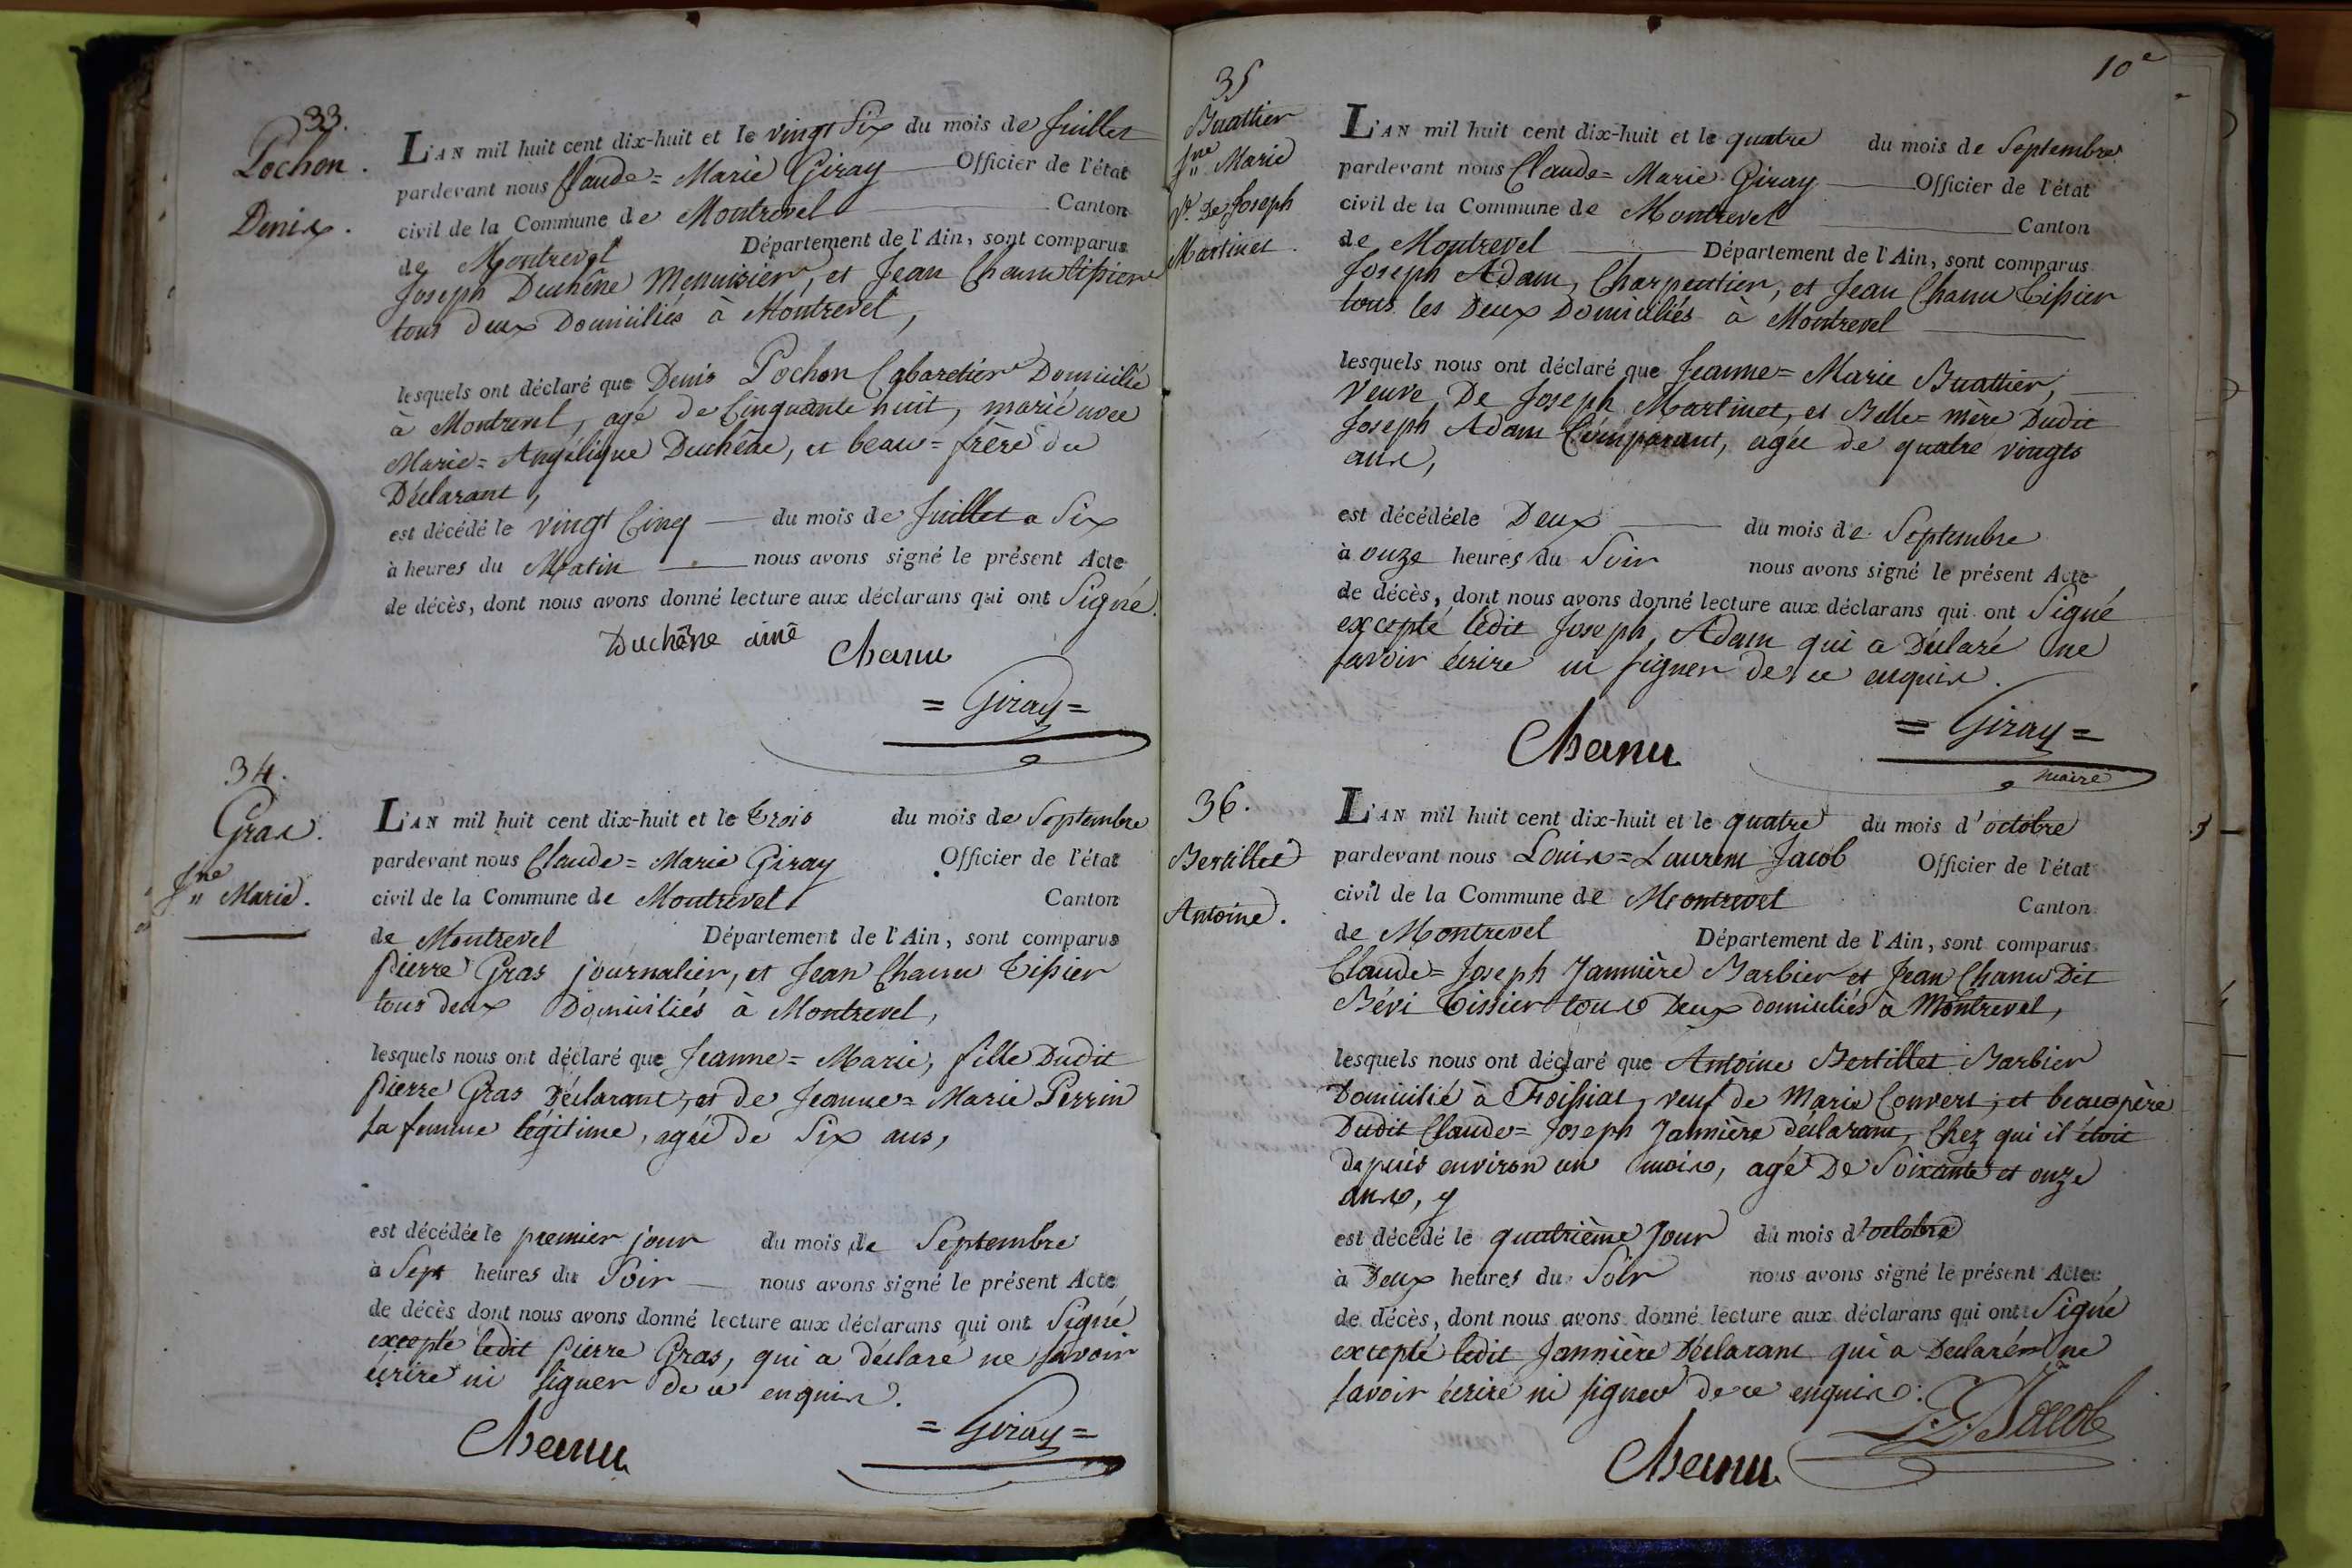 33.
Pochon.
Denis.
L'AN mil huit cent dix-huit et le vingt Six du mois de Juillet
pardevant nous Claude=Marie Giray Officier de l'état
civil de la Commune de Montrevel Canton
de Montrevel Département de l'Ain, sont comparus
Joseph Duchêne Menuisier, et Jean Chanu tissier
tous deux Domiciliés à Montrevel,
lesquels ont déclaré que Denis Pochon Cabaretier Domicilié
à Montrevel, agé de Cinquante huit, marié avec
Marie=Angélique Duchêne, et beau=frère du
Déclarant,
est décédé le vingt Cinq du mois de Juillet a Six
à heures du Matin nous avons signé le présent Acte
de décès, dont nous avons donné lecture aux déclarans qui ont Signé.
Duchêne ainé
Chanu
=Giray=
34.
Gras.
Jne Marie.
L'AN mil huit cent dix-huit et le trois du mois de Septembre
pardevant nous Claude=Marie Giray Officier de l'état
civil de la Commune de Montrevel Canton
de Montrevel Département de l'Ain, sont comparus
pierre Gras journalier, et Jean Chanu tissier
tous deux Domiciliés à Montrevel,
lesquels nous ont déclaré que Jeanne=Marie, fille Dudit
pierre Gras Déclarant, et de Jeanne=Marie Perrin
sa femme légitime, agée de Six ans,
est décédée le premier jour du mois de Septembre
à Sept heures du Soir nous avons signé le présent Acte
de décès dont nous avons donné lecture aux déclarans qui ont Signé
excepté ledit pierre Gras, qui a déclaré ne savoir
écrire ni signer de ce enquis.
Chanu
=Giray=
10e
35
Buattier
Jne Marie
Ve. De Joseph
Martinet.
L'AN mil huit cent dix-huit et le quatre du mois de Septembre
pardevant nous Claude=Marie Giray Officier de l'état
civil de la Commune de Montrevel Canton
de Montrevel Département de l'Ain, sont comparus
Joseph Adam, Charpentier, et Jean Chanu tissier
tous les Deux Domiciliés à Montrevel
lesquels nous ont déclaré que Jeanne=Marie Buattier,
Veuve De Joseph Martinet, et Belle=mère Dudit
Joseph Adam Comparant, agée de quatre vingts
ans,
est décédée le Deux du mois de Septembre
à onze heures du Soir nous avons signé le présent Acte
de décès, dont nous avons donné lecture aux déclarans qui ont Signé
excepté ledit Joseph Adam qui a Déclaré ne
savoir écrire ni signer de ce enquis.
Chanu
=Giray=
maire
36.
Bertillet
Antoine.
L'AN mil huit cent dix-huit et le quatre du mois d'octobre
pardevant nous Louis=Laurent Jacob Officier de l'état
civil de la Commune de Montrevel Canton
de Montrevel Département de l'Ain, sont comparus
Claude=Joseph Jannière Barbier et Jean Chanu Dit
Bévi tissier tous Deux domiciliés à Montrevel,
lesquels nous ont déclaré que Antoine Bertillet Barbier
Domicilié à Foissiat, veuf de Marie Convert, et beaupère
Dudit Claude=Joseph Jannière déclarant, Chez qui il étoit
depuis environ un mois, agé De Soixante et onze
ans, y
est décédé le quatrième Jour du mois d'octobre
à Deux heures du Soir nous avons signé le présent Acte
de décès, dont nous avons donné lecture aux déclarans qui ont Signé
excepté ledit Jannière Déclarant qui a Déclaré ne
savoir écrire ni signer de ce enquis.
Chanu
L.L. Jacob